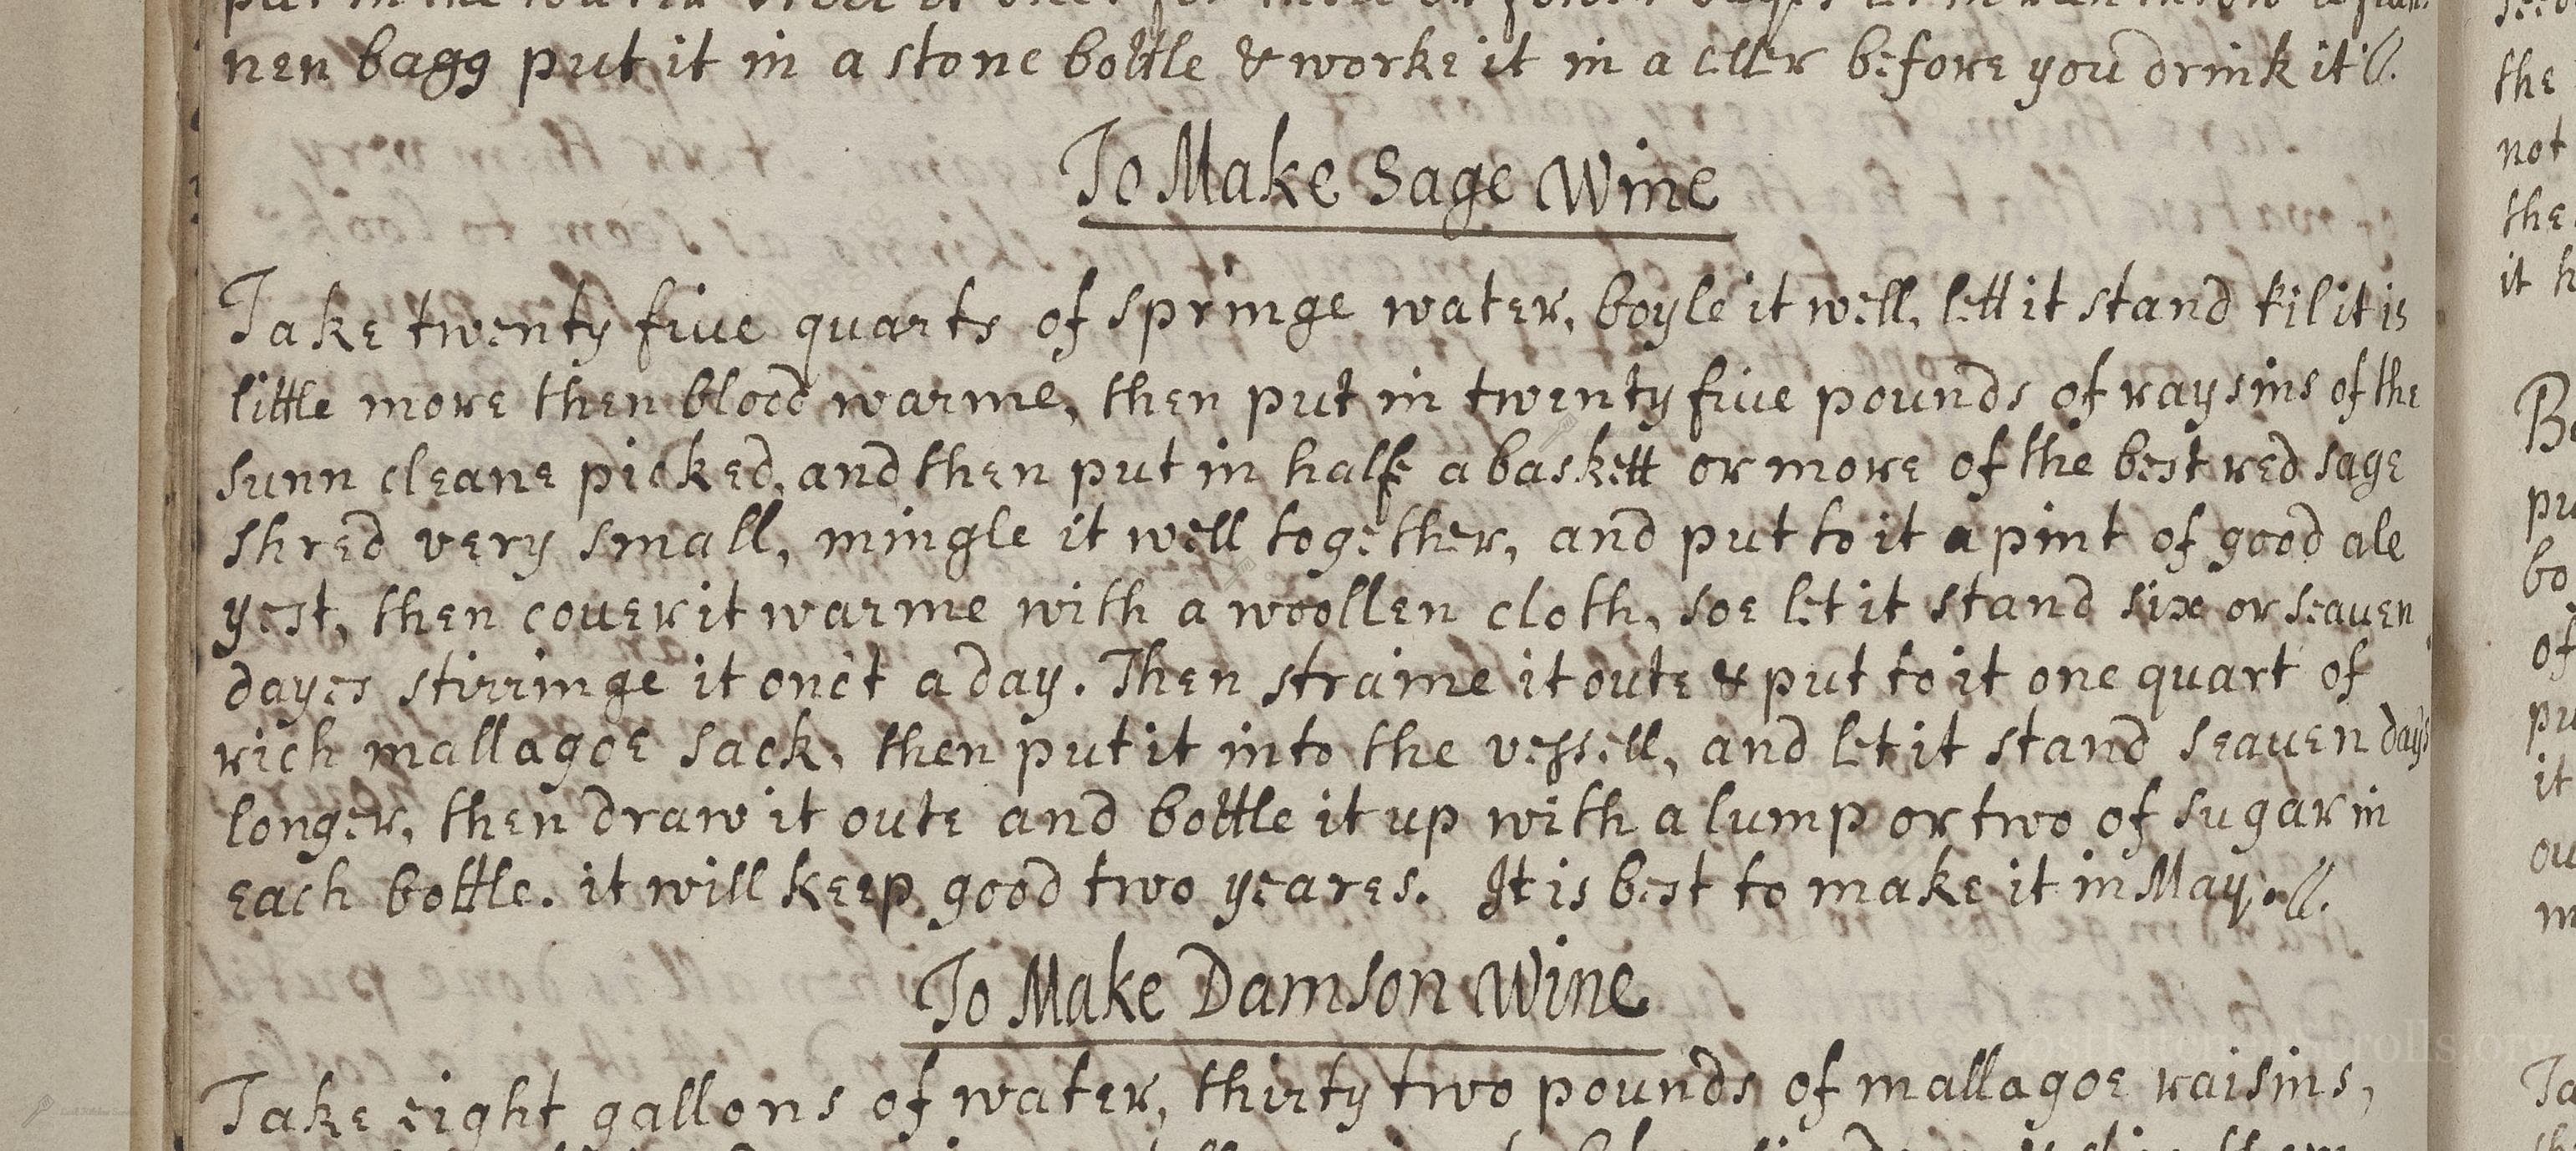 nen bagg put it in a stone bottle & worke it in a celler before you drink it //.
To Make Sage Wine
Take twenty five quarts of springe water, boyle it well, lett it stand til it is
little more then blood warme, then put in twenty five pounds of raysins of the
sunn cleane picked, and then put in halfe a baskett or more of the best red sage
shred very small, mingle it well together, and put to it a pint of good ale
yest, then couer it warme with a woollen cloth, soe let it stand six or seauen
dayes stirringe it onct a day. Then straine it oute & put to it one quart of
rich mallagoe sack, then put it into the vessell, and let it stand seauen days
longer, then draw it oute and bottle it up with a lump or two of sugar in
each bottle. it will keep good two yeares. It is best to make it in May. //.
To Make Damson Wine
Take eight gallons of water, thirty two pounds of mallagoe raisins,
the
not
the
it